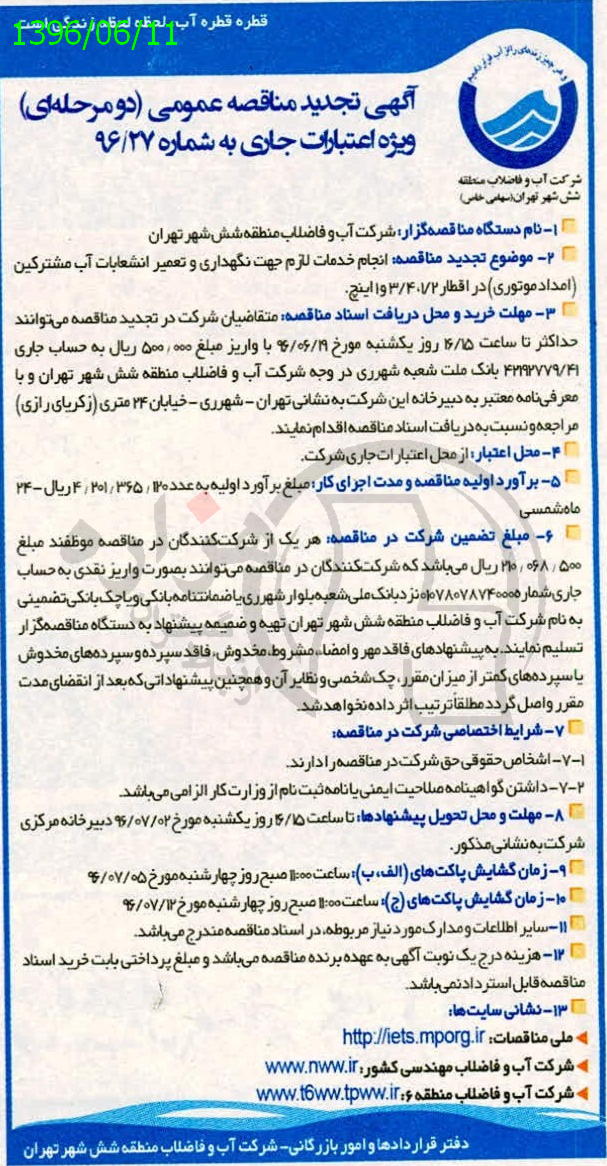 قطره قطره آب، لحظه لحظه زندگی است
1396/06/11
و هر چیز زنده‌ای را از آب قرار دادیم
آگهی تجدید مناقصه عمومی (دو مرحله‌ای)
ویژه اعتبارات جاری به شماره ۹۶/۲۷
شرکت آب و فاضلاب منطقه
شش شهر تهران (سهامی خاص)
۱- نام دستگاه مناقصه‌گزار: شرکت آب و فاضلاب منطقه شش شهر تهران
۲- موضوع تجدید مناقصه: انجام خدمات لازم جهت نگهداری و تعمیر انشعابات آب مشترکین
(امداد موتوری) در اقطار ۱/۲، ۳/۴ و ۱ اینچ.
۳- مهلت خرید و محل دریافت اسناد مناقصه: متقاضیان شرکت در تجدید مناقصه می‌توانند
حداکثر تا ساعت ۱۶/۱۵ روز یکشنبه مورخ ۹۶/۰۶/۱۹ با واریز مبلغ ۵۰۰,۰۰۰ ریال به حساب جاری
۴۲۱۹۲۷۷۹/۴۱ بانک ملت شعبه شهرری در وجه شرکت آب و فاضلاب منطقه شش شهر تهران و با
معرفی‌نامه معتبر به دبیرخانه این شرکت به نشانی تهران - شهرری - خیابان ۲۴ متری (زکریای رازی)
مراجعه و نسبت به دریافت اسناد مناقصه اقدام نمایند.
۴- محل اعتبار: از محل اعتبارات جاری شرکت.
۵- برآورد اولیه مناقصه و مدت اجرای کار: مبلغ برآورد اولیه به عدد ۴,۲۰۱,۳۶۵,۱۲۰ ریال - ۲۴
ماه شمسی
۶- مبلغ تضمین شرکت در مناقصه: هر یک از شرکت‌کنندگان در مناقصه موظفند مبلغ
۲۱۰,۰۶۸,۵۰۰ ریال می‌باشد که شرکت‌کنندگان در مناقصه می‌توانند بصورت واریز نقدی به حساب
جاری شماره ۰۱۰۷۸۰۷۸۷۴۰۰۰ نزد بانک ملی شعبه بلوار شهرری یا ضمانتنامه بانکی و یا چک بانکی تضمینی
به نام شرکت آب و فاضلاب منطقه شش شهر تهران تهیه و ضمیمه پیشنهاد به دستگاه مناقصه‌گزار
تسلیم نمایند. به پیشنهادهای فاقد مهر و امضاء، مشروط، مخدوش، فاقد سپرده و سپرده‌های مخدوش
یا سپرده‌های کمتر از میزان مقرر، چک شخصی و نظایر آن و همچنین پیشنهاداتی که بعد از انقضای مدت
مقرر واصل گردد مطلقاً ترتیب اثر داده نخواهد شد.
۷- شرایط اختصاصی شرکت در مناقصه:
۷-۱- اشخاص حقوقی حق شرکت در مناقصه را دارند.
۷-۲- داشتن گواهینامه صلاحیت ایمنی یا نامه ثبت نام از وزارت کار الزامی می‌باشد.
۸- مهلت و محل تحویل پیشنهادها: تا ساعت ۱۶/۱۵ روز یکشنبه مورخ ۹۶/۰۷/۰۲ دبیرخانه مرکزی
شرکت به نشانی مذکور.
۹- زمان گشایش پاکت‌های (الف، ب): ساعت ۱۱:۰۰ صبح روز چهارشنبه مورخ ۹۶/۰۷/۰۵
۱۰- زمان گشایش پاکت‌های (ج): ساعت ۱۱:۰۰ صبح روز چهارشنبه مورخ ۹۶/۰۷/۱۲
۱۱- سایر اطلاعات و مدارک مورد نیاز مربوطه، در اسناد مناقصه مندرج می‌باشد.
۱۲- هزینه درج یک نوبت آگهی به عهده برنده مناقصه می‌باشد و مبلغ پرداختی بابت خرید اسناد
مناقصه قابل استرداد نمی‌باشد.
۱۳- نشانی سایت‌ها:
ملی مناقصات: http://iets.mporg.ir
شرکت آب و فاضلاب مهندسی کشور: www.nww.ir
شرکت آب و فاضلاب منطقه ۶: www.t6ww.tpww.ir
دفتر قراردادها و امور بازرگانی - شرکت آب و فاضلاب منطقه شش شهر تهران